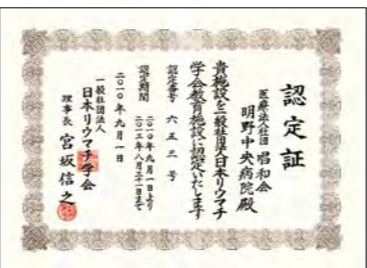 認定証
医療法人社団 唱和会
明野中央病院殿
貴施設を一般社団法人日本リウマチ
学会教育施設に認定いたします
認定番号 六五三号
認定期間 二〇一〇年九月一日より
二〇一三年八月三十一日まで
二〇一〇年九月一日
一般社団法人
日本リウマチ学会
理事長 宮坂信之